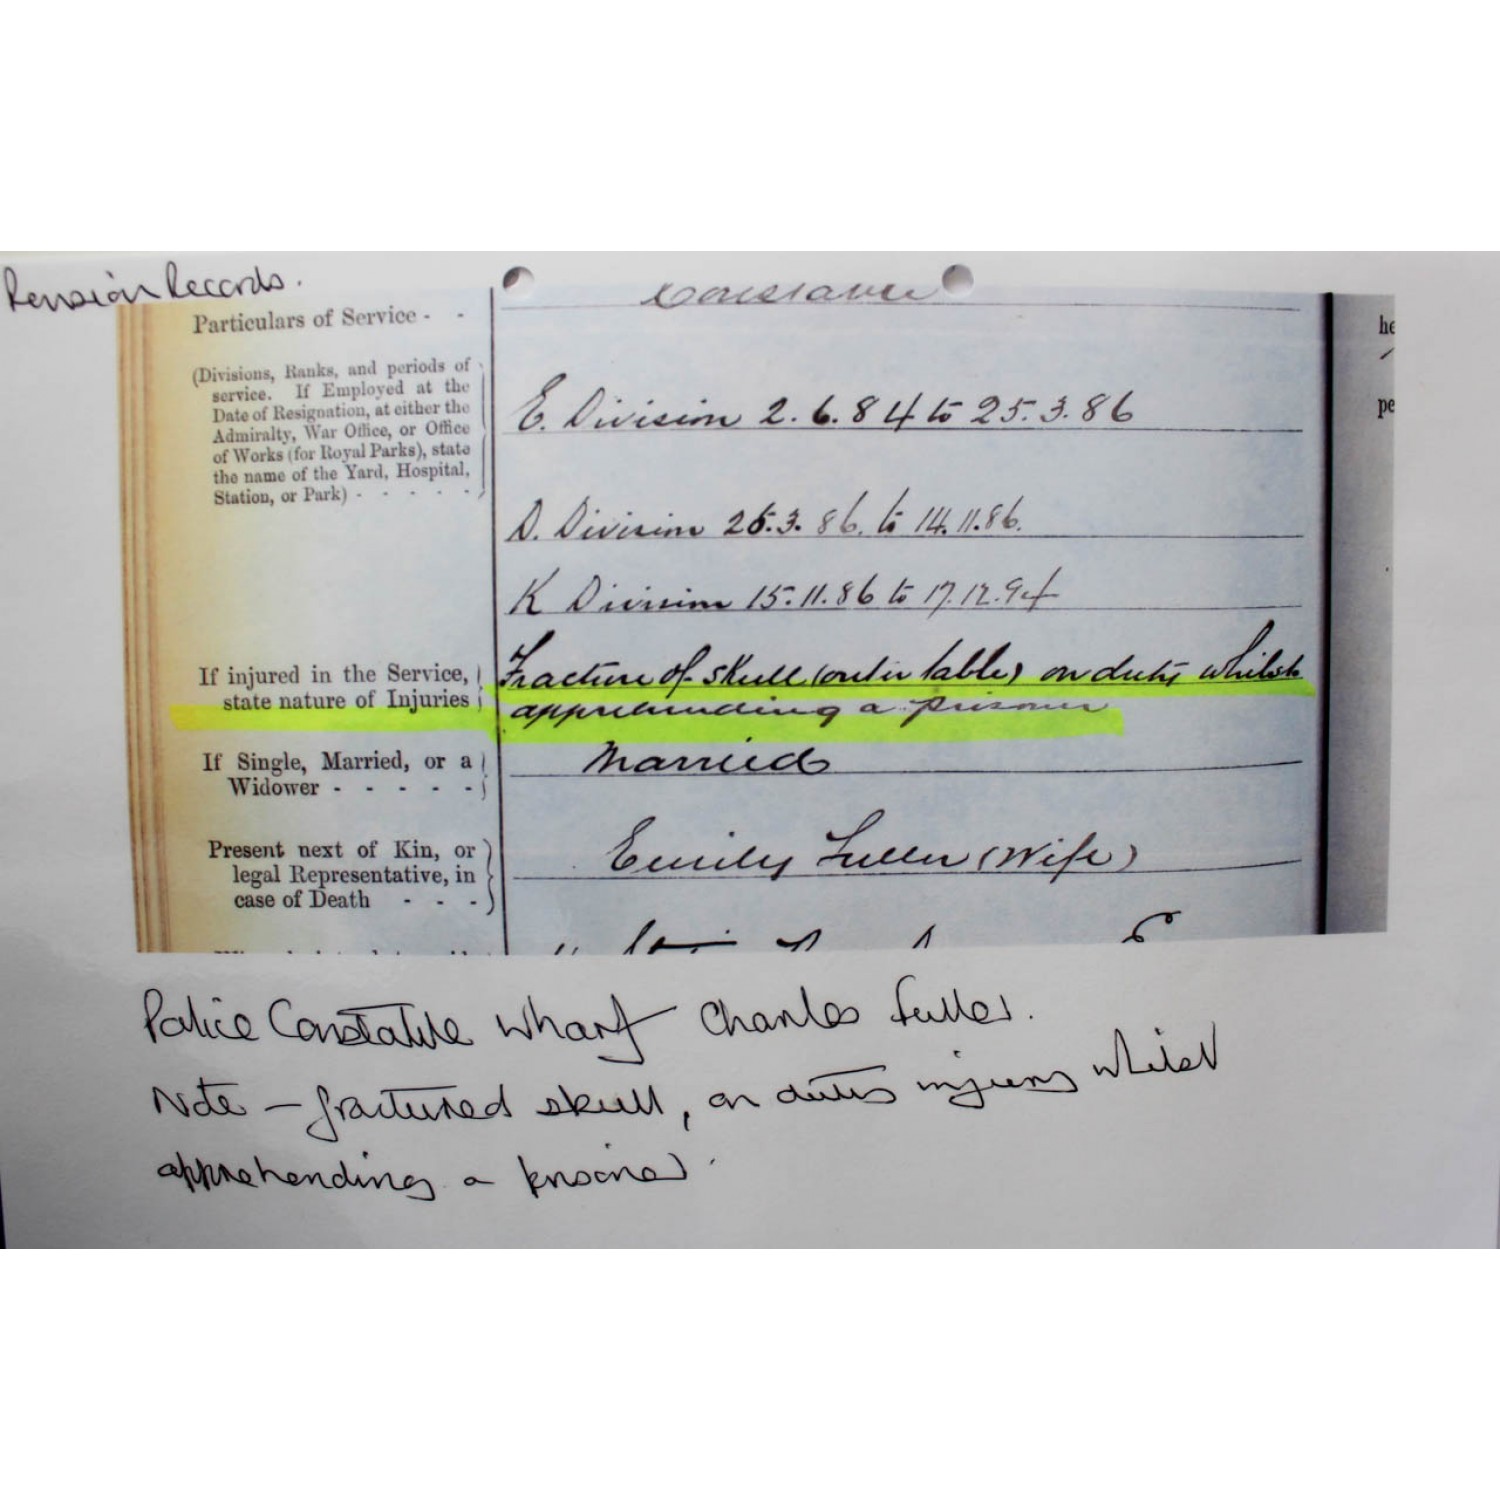 Pension Records.
Constable
Particulars of Service - -
(Divisions, Ranks, and periods of
service. If Employed at the
Date of Resignation, at either the
Admiralty, War Office, or Office
of Works (for Royal Parks), state
the name of the Yard, Hospital,
Station, or Park) - - - - -
E. Division 2.6.84 to 25.3.86
D. Division 26.3.86. to 14.11.86.
K Division 15.11.86 to 17.12.94
If injured in the Service,
state nature of Injuries
Fracture of Skull (outer table) on duty whilst
apprehending a prisoner
If Single, Married, or a
Widower - - - - -
Married
Present next of Kin, or
legal Representative, in
case of Death - - -
Emily Fuller (Wife)
he
pe
Police Constable Wharf Charles Fuller.
Note - fractured skull, on duty injury whilst
apprehending a prisoner.